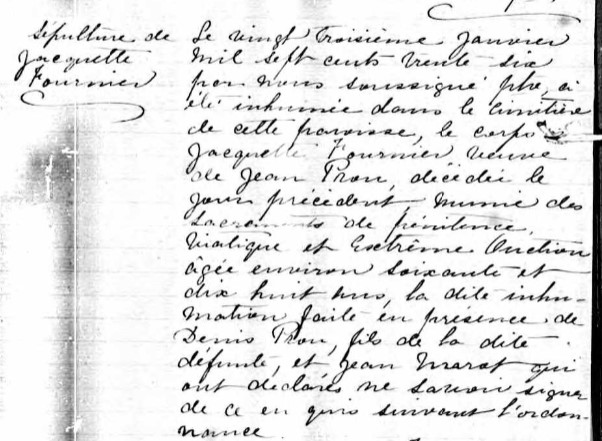 Sépulture de
Jacquette
Fournier
Le vingt troisième Janvier
mil sept cents trente six
par nous soussigné ptre, a
été inhumée dans le cimitière
de cette paroisse, le corps
Jacquette Fournier veuve
de Jean Prou, décédée le
jour précédent, munie des
sacrements de pénitence,
viatique et Extrême Onction
âgée environ soixante et
dix huit ans, la dite inhu-
mation faite en présence de
Denis Prou, fils de la dite
défunte, et Jean Marot qui
ont déclarés ne savoir signer
de ce en quis suivant l'ordon-
nance.